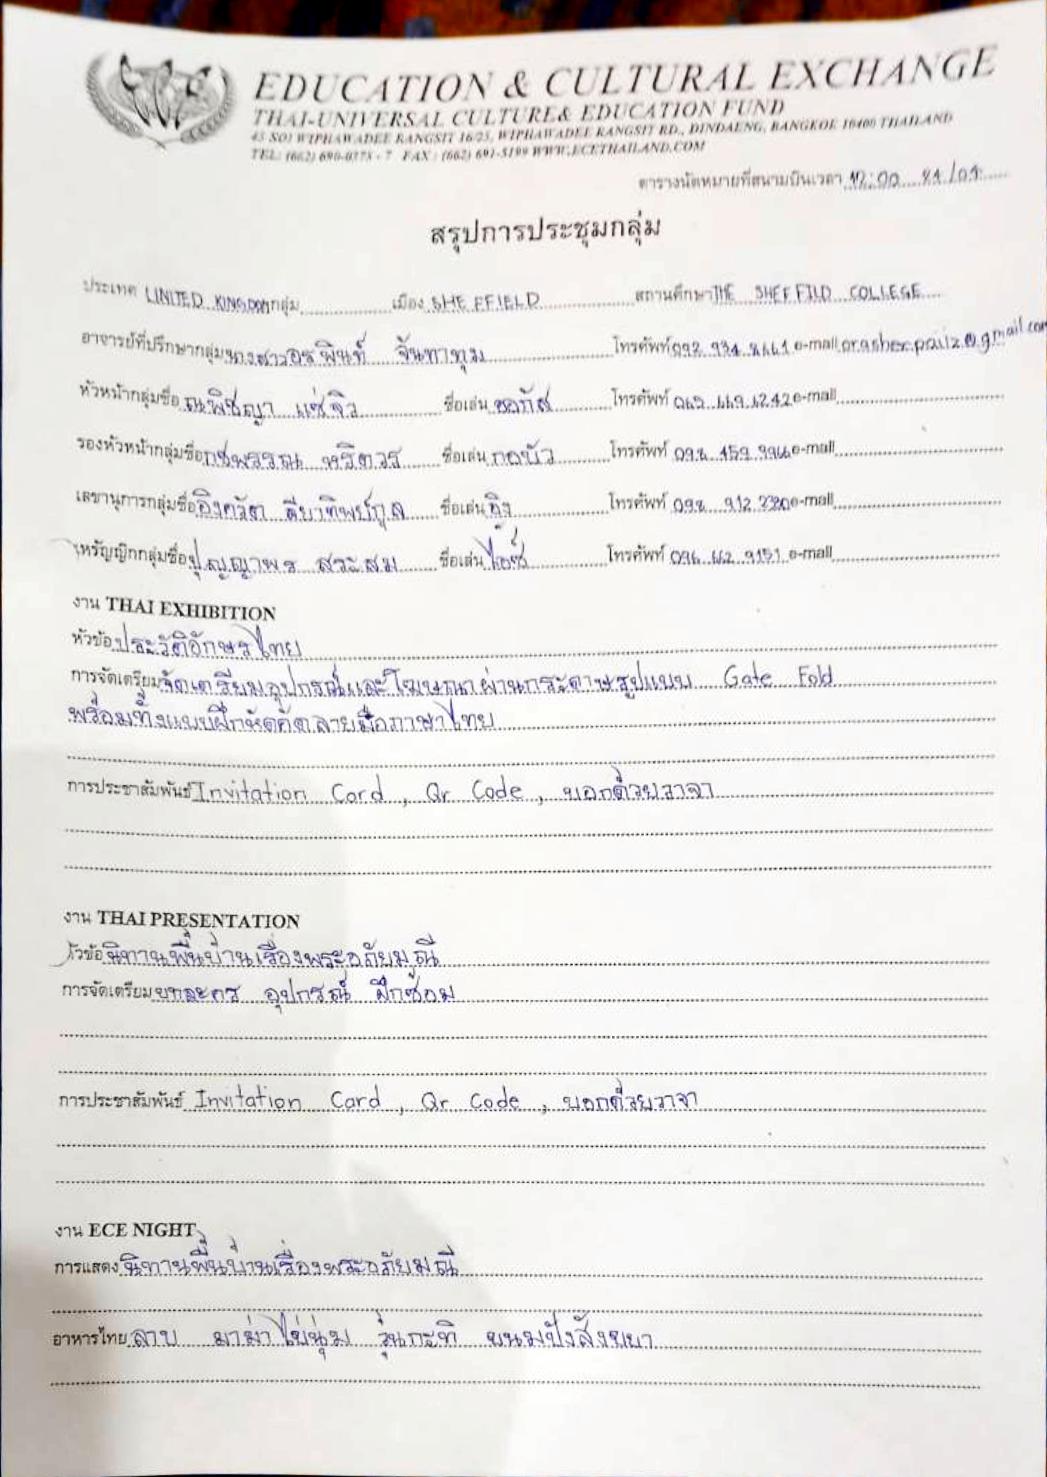 EDUCATION & CULTURAL EXCHANGE
THAI-UNIVERSAL CULTURE& EDUCATION FUND
43 SOI WIPHAWADEE RANGSIT 16/25, WIPHAWADEE RANGSIT RD., DINDAENG, BANGKOK 10400 THAILAND
TEL: (662) 690-0778 - 7 FAX : (662) 691-5199 WWW.ECETHAILAND.COM
ตารางนัดหมายที่สนามบินเวลา
สรุปการประชุมกลุ่ม
ประเทศ UNITED KINGDOM กลุ่ม เมือง SHEFFIELD สถานศึกษา THE SHEFFILD COLLEGE
อาจารย์ที่ปรึกษากลุ่ม นางสาวอรพินท์ จันทาทุม โทรศัพท์ e-mail
หัวหน้ากลุ่มชื่อ ณพิชญา แซ่จิว ชื่อเล่น โทรศัพท์ 065 669 6242 e-mail
รองหัวหน้ากลุ่มชื่อ กชพรรณ หริตวร ชื่อเล่น กอบัว โทรศัพท์ 098 459 9966 e-mail
เลขานุการกลุ่มชื่อ อิงครัต ชื่อเล่น อิง โทรศัพท์ 098 912 2380 e-mail
เหรัญญิกกลุ่มชื่อ ปุญญาพร สระสม ชื่อเล่น ไอซ์ โทรศัพท์ 096 662 9151 e-mail
งาน THAI EXHIBITION
หัวข้อ ประวัติอักษรไทย
การจัดเตรียม จัดเตรียมอุปกรณ์และโฆษณาผ่านกระดาษรูปแบบ Gate Fold
พร้อมทั้งแบบฝึกหัดคัดลายมือภาษาไทย
การประชาสัมพันธ์ Invitation Card , Qr Code , บอกด้วยวาจา
งาน THAI PRESENTATION
หัวข้อ นิทานพื้นบ้านเรื่องพระอภัยมณี
การจัดเตรียม บทละคร อุปกรณ์ ฝึกซ้อม
การประชาสัมพันธ์ Invitation Card , Qr Code , บอกด้วยวาจา
งาน ECE NIGHT
การแสดง นิทานพื้นบ้านเรื่องพระอภัยมณี
อาหารไทย ลาบ มาม่า ไข่นุ่ม วุ้นกะทิ ขนมปังสังขยา